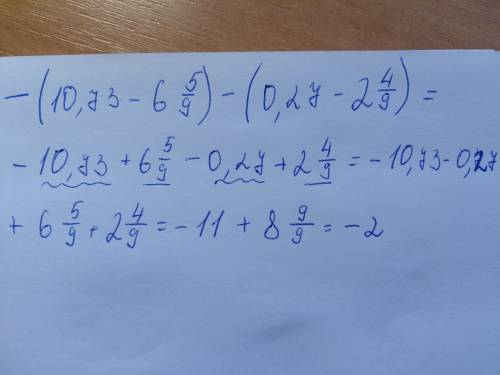 -(10,73 - 6 5/9) - (0,27 - 2 4/9) =
- 10,73 + 6 5/9 - 0,27 + 2 4/9 = - 10,73 - 0,27
+ 6 5/9 + 2 4/9 = - 11 + 8 9/9 = - 2